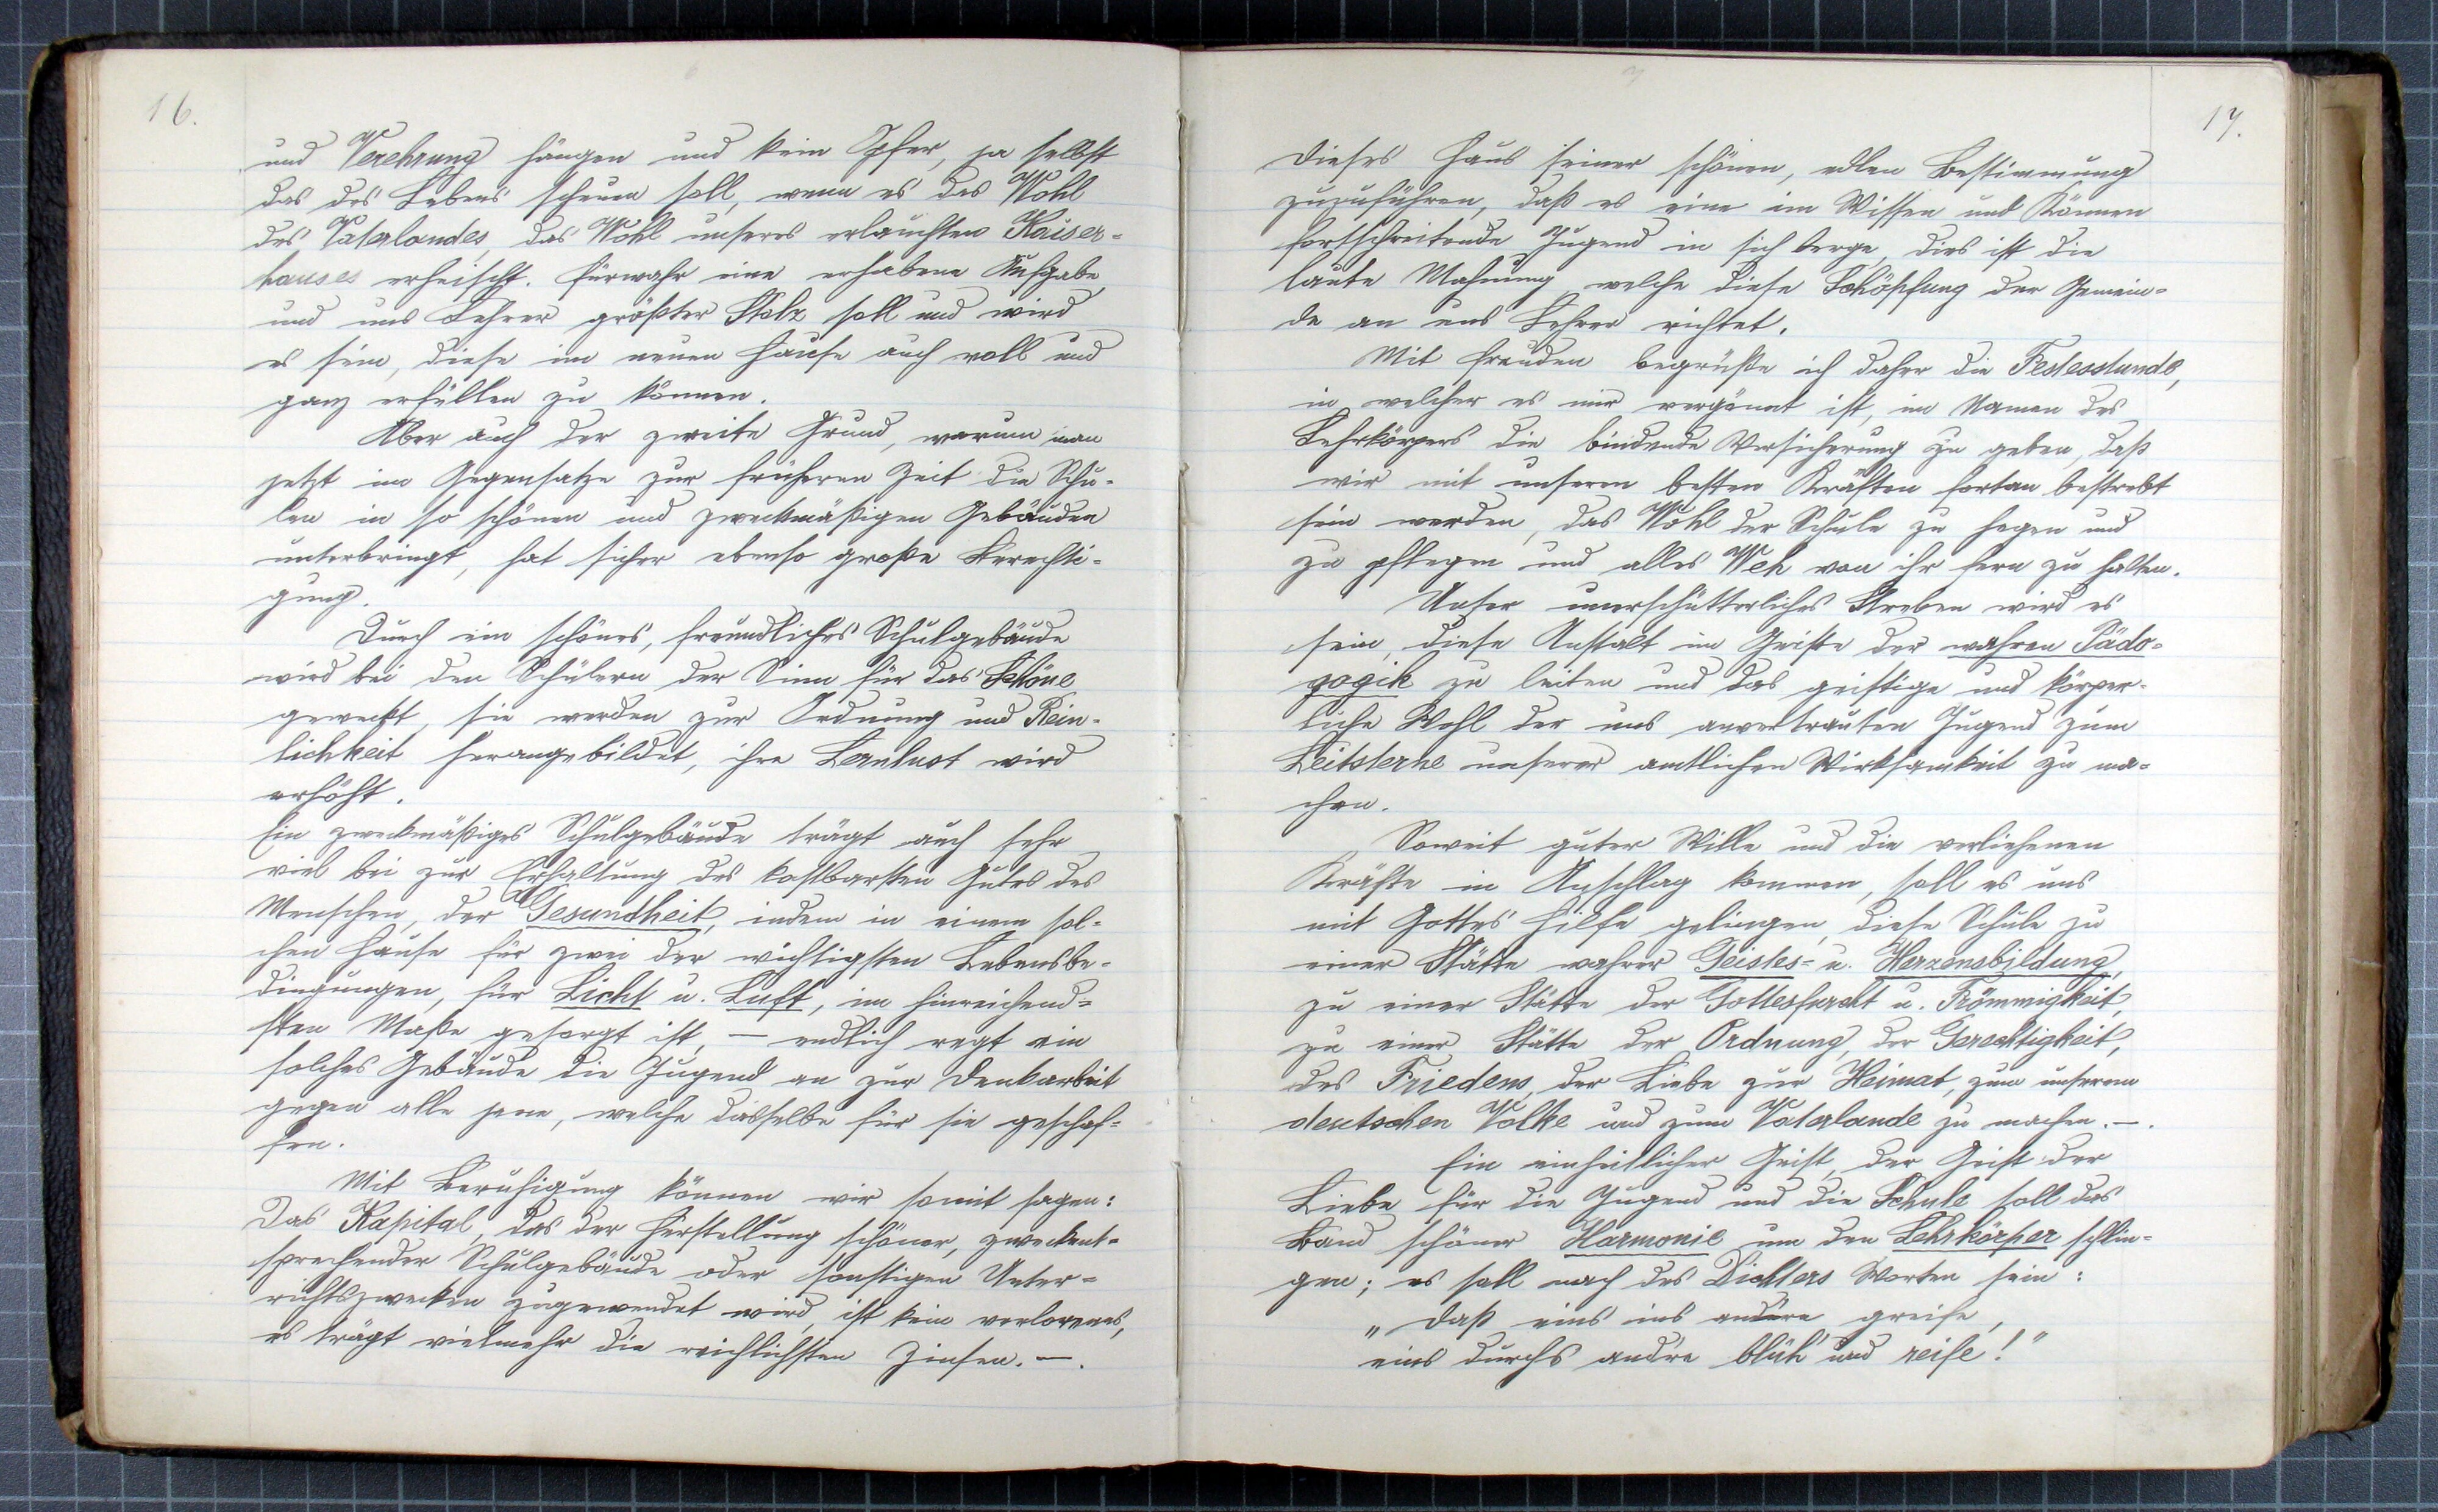 16.
und Verehrung hängen und kein Opfer, ja selbst
das des Lebens scheuen soll, wenn es das Wohl
des Vaterlandes, das Wohl unseres erlauchten Kaiser-
hauses erheischt. Fürwahr eine erhabene Aufgabe,
und uns Lehrer größter Stolz soll und wird
es sein, diese im neuen Hause auch voll und
ganz erfüllen zu können.
Aber auch der zweite Grund, warum man
jetzt im Gegensatze zur früheren Zeit die Schu-
len in so schönen und zweckmäßigen Gebäuden
unterbringt, hat sicher ebenso große Berechti-
gung.
Durch ein schönes, freundliches Schulgebäude
wird bei den Schülern der Sinn für das Schöne
geweckt, sie werden zur Ordnung und Rein-
lichkeit herangebildet, ihre Lernlust wird
erhöht.
Ein zweckmäßiges Schulgebäude trägt auch sehr
viel bei zur Erhaltung des kostbarsten Gutes des
Menschen, der Gesundheit, indem in einem sol-
chen Hause für zwei der wichtigsten Lebensbe-
dingungen, für Licht u. Luft, im hinreichend-
sten Maße gesorgt ist, — endlich regt ein
solches Gebäude die Jugend an zur Denkarbeit
gegen alle jene, welche dasselbe für sie geschaf-
fen.
Mit Beruhigung können wir somit sagen:
Das Kapital, das der Herstellung schöner, zweckent-
sprechender Schulgebäude oder sonstigen Unter-
richtszwecken zugewendet wird, ist kein verlorenes,
es trägt vielmehr die reichlichsten Zinsen. —.
17.
dieses Haus seiner schönen, edlen Bestimmung
zuzuführen, daß es eine im Wissen und Können
fortschreitende Jugend in sich berge, dies ist die
laute Mahnung, welche diese Schöpfung der Gemein-
de an uns Lehrer richtet.
Mit Freuden begrüße ich daher die Festesstunde,
in welcher es mir vergönnt ist, im Namen des
Lehrkörpers die bindende Versicherung zu geben, daß
wir mit unseren besten Kräften fortan bestrebt
sein werden, das Wohl der Schule zu hegen und
zu pflegen und alles Weh von ihr fern zu halten.
Unser unerschütterliches Streben wird es
sein, diese Anstalt im Geiste der wahren Päda-
gogik zu leiten und das geistige und körper-
liche Wohl der uns anvertrauten Jugend zum
Leitsterne unserer amtlichen Wirksamkeit zu ma-
chen.
Soweit guter Wille und die verliehenen
Kräfte in Anschlag kommen, soll es uns
mit Gottes Hilfe gelingen, diese Schule zu
einer Stätte wahrer Geistes- u. Herzensbildung,
zu einer Stätte der Gottesfurcht u. Frömmigkeit,
zu einer Stätte der Ordnung, der Gerechtigkeit,
des Friedens, der Liebe zur Heimat, zum unserem
deutschen Volke und zum Vaterlande zu machen. —.
Ein einheitlicher Geist, der Geist der
Liebe für die Jugend und die Schule soll das
Band schöner Harmonie um den Lehrkörper schlin-
gen; es soll nach des Dichters Worten sein:
„Daß eins ins andere greife,
eins durchs and're blüh' und reife!"